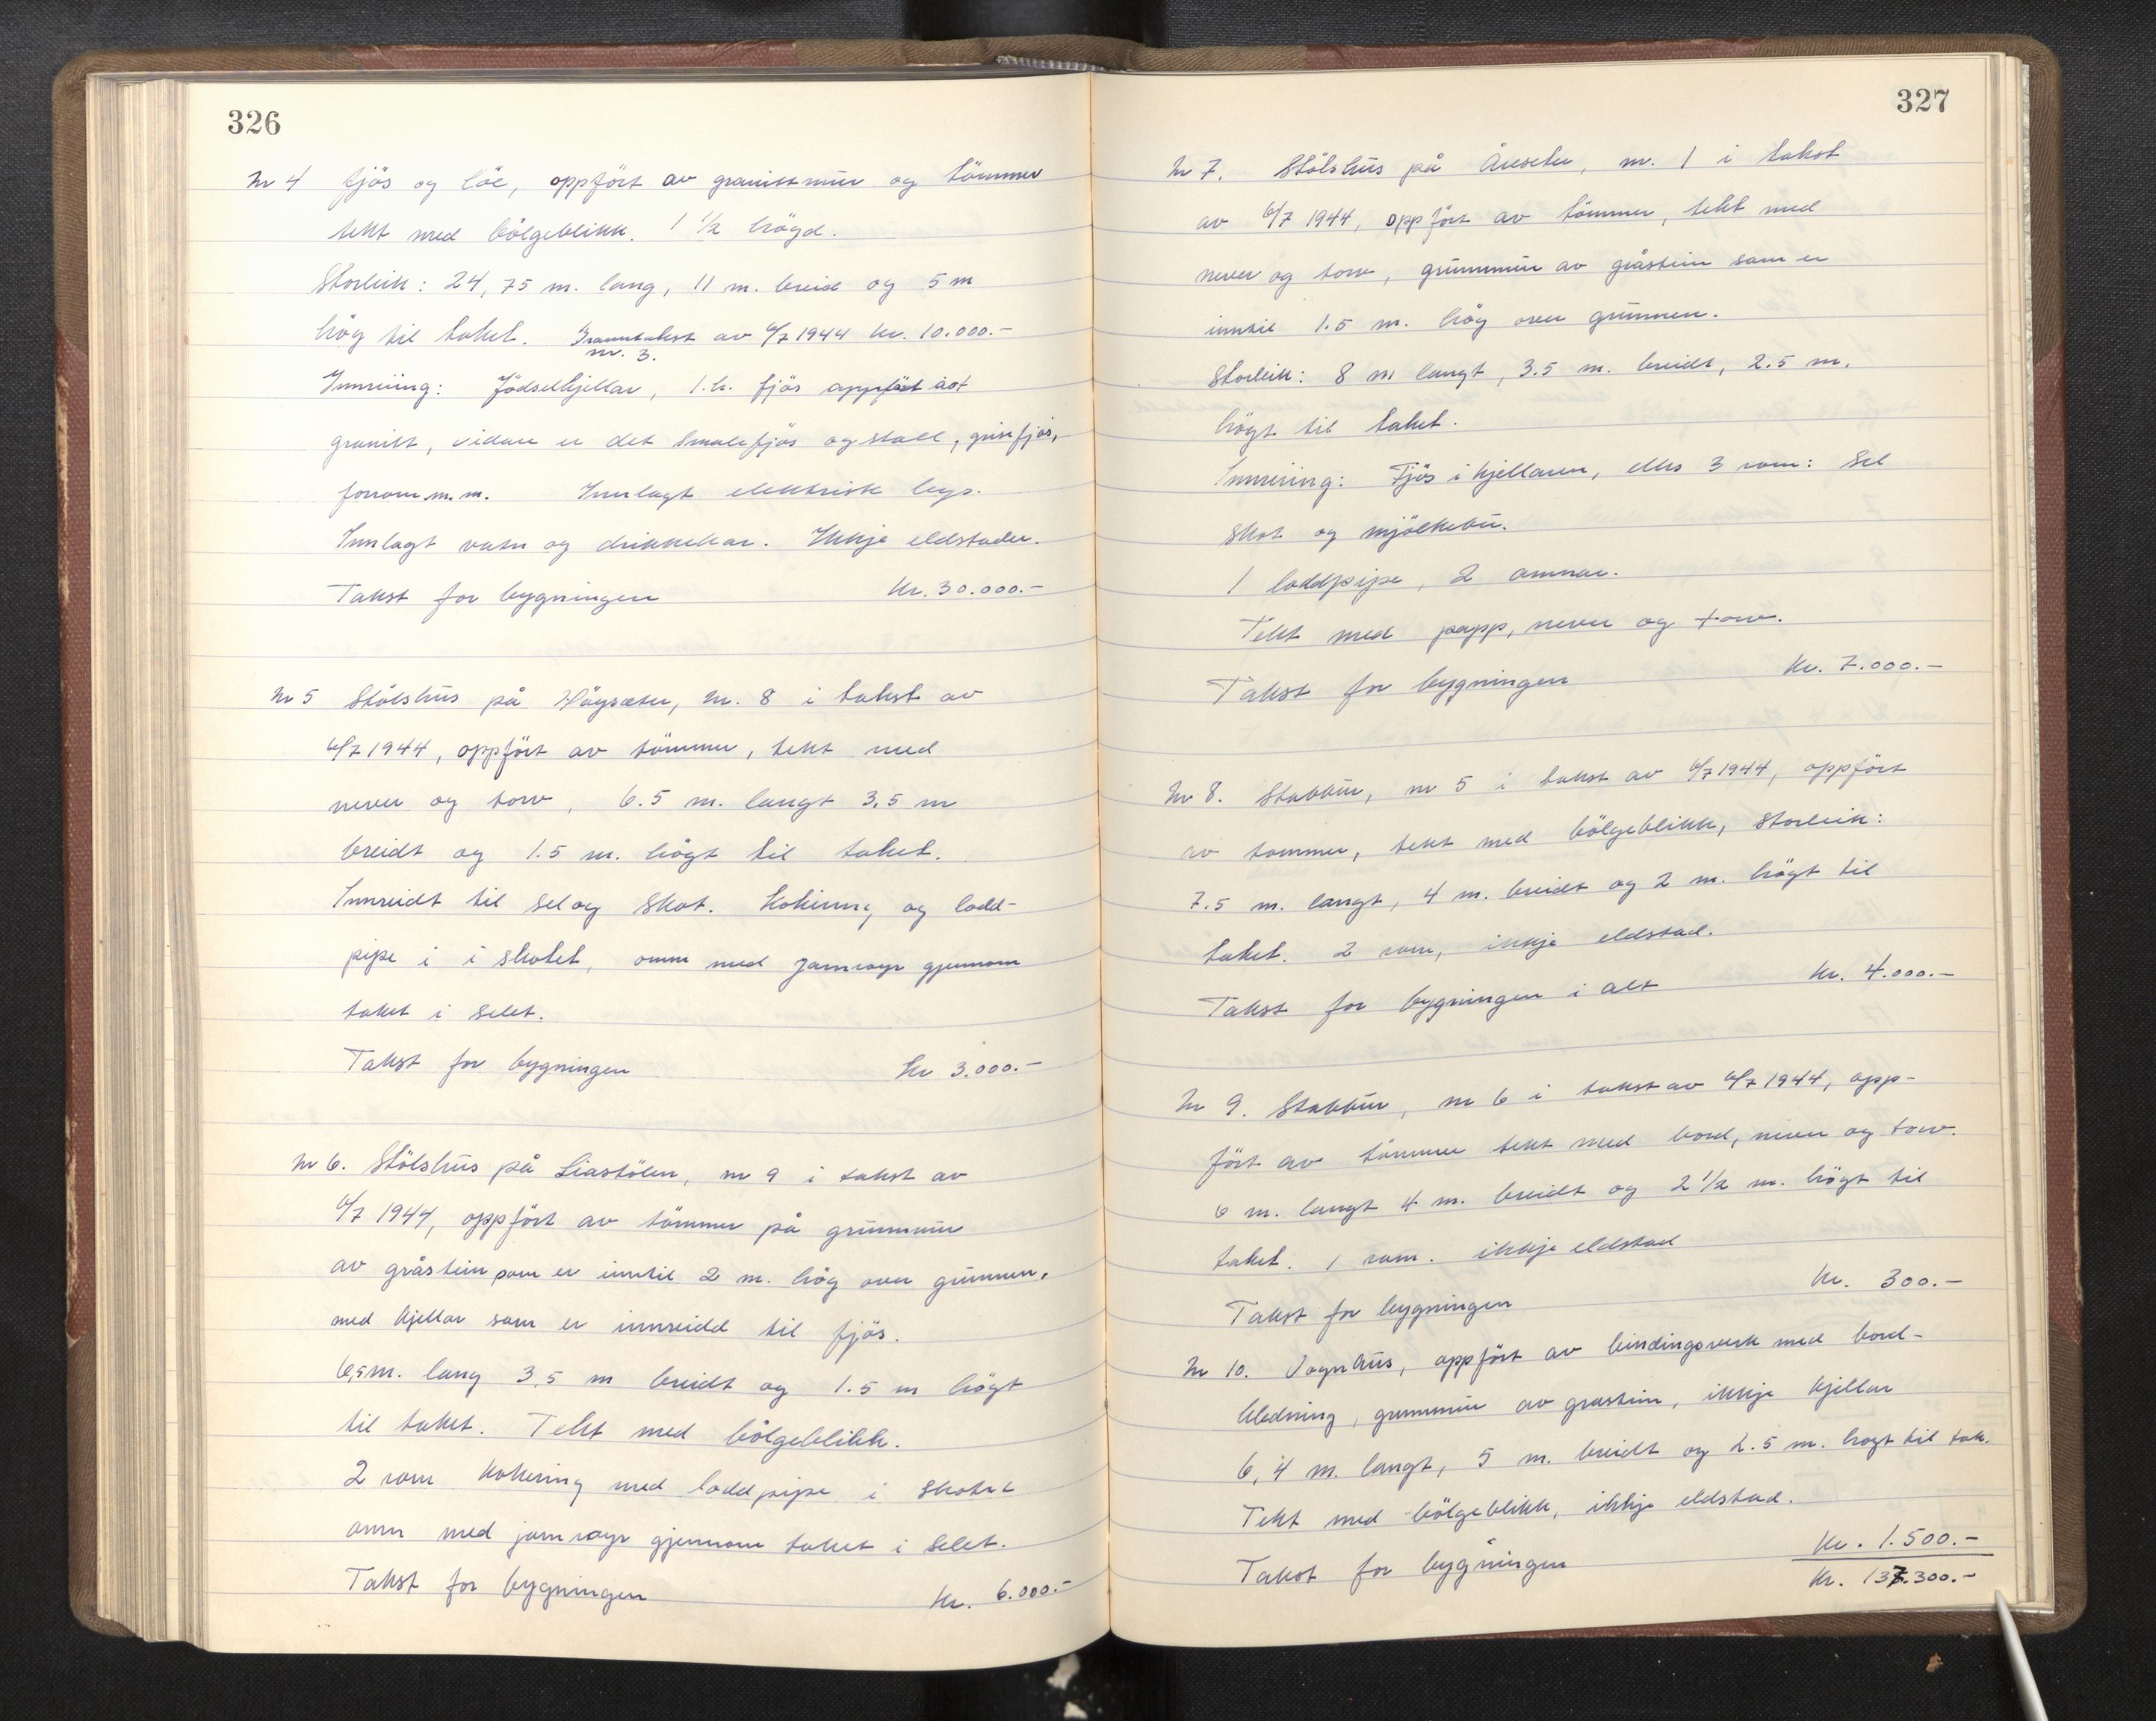 326
Nr 4 fjös og löe, oppfört av granittmur og tömmer
tekt med bölgeblikk. 1 1/2 högd.
Storleik: 24,75 m. lang, 11 m. breid og 5 m
hög til taket. Branntakst av 6/7 1944 kr. 10.000.-
nr. 3.
Innreiing: Jödselkjellar, 1.h. fjös oppfört åot
granitt, vidare er det smalefjös og stall, grisefjös,
forrom m.m. Innlagt elektrisk lys.
Innlagt vatn og drikkekar. Ikkje eldstader.
Takst for bygningen kr. 30.000.-
Nr 5 Stölshus på Höysæter, nr. 8 i takst av
6/7 1944, oppfört av tömmer, tekt med
never og torv, 6.5 m. langt 3,5 m
breidt og 1.5 m. högt til taket.
Innreidt til sel og skot. Kokering og lodd-
pipe i i skotet, omn med jarnrøyr gjennom
taket i selet.
Takst for bygningen kr 3.000.-
Nr 6. Stölshus på Liastölen, nr 9 i takst av
6/7 1944, oppfört av tömmer på grunnmur
av gråstein som er inntil 2 m. hög over grunnen,
med kjellar som er innreidd til fjös.
6,5 m. lang 3,5 m breidt og 1.5 m högt
til taket. Tekt med bölgeblikk.
2 rom kokering med loddpipe i skotet
omn med jarnrøyr gjennom taket i selet.
Takst for bygningen kr. 6.000.-
327
Nr 7. Stölshus på Åreseter, nr. 1 i takst
av 6/7 1944, oppfört av tömmer, tekt med
never og torv, grunnmur av gråstein som er
inntil 1.5 m. hög over grunnen.
Storleik: 8 m langt, 3.5 m. breidt, 2.5 m.
högt til taket.
Innreiing: Fjös i kjellaren, elles 3 rom: Sel
skot og mjölkebu.
1 loddpipe, 2 omnar.
Tekt med papp, never og torv.
Takst for bygningen kr. 7.000.-
Nr 8. Stabbur, nr 5 i takst av 6/7 1944, oppfört
av tommer, tekt med bölgeblikk, storleik:
7.5 m. langt, 4 m. breidt og 2 m. högt til
taket. 2 rom, ikkje eldstad.
Takst for bygningen i alt kr. 4.000.-
Nr 9. Stabbur, nr 6 i takst av 6/7 1944, opp-
fört av tömmer tekt med bord, never og torv.
6 m. langt 4 m. breidt og 2 1/2 m. högt til
taket. 1 rom. ikkje eldstad
Takst for bygningen kr. 300.-
Nr 10. Vognhus, oppfört av bindingsverk med bord-
kledning, grunnmur av grastein, ikkje kjellar
6,4 m. langt, 5 m. breidt og 2.5 m. hogt til tak.
Tekt med bölgeblikk, ikkje eldstad.
Takst for bygningen kr. 1.500.-
kr. 137.300.-